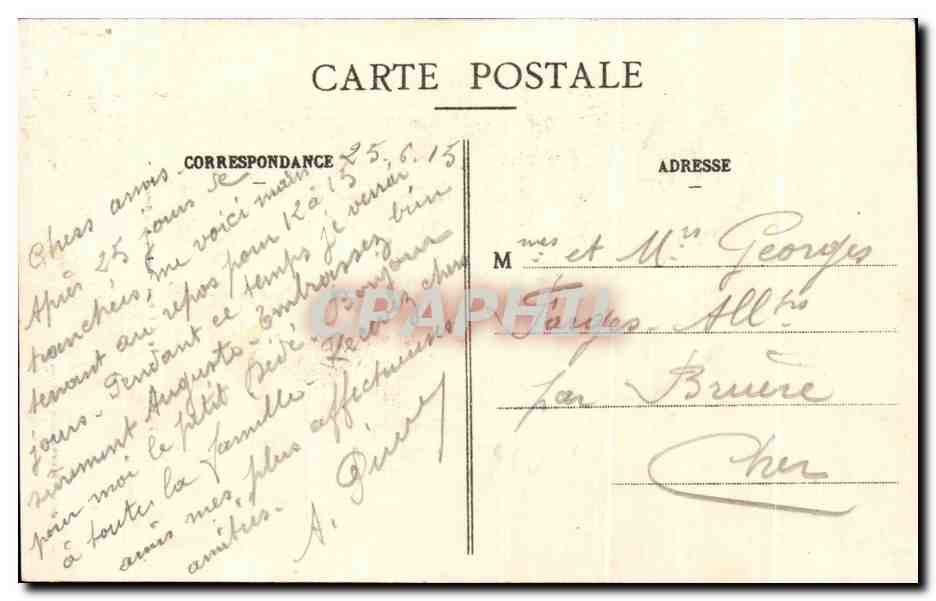 CARTE POSTALE
CORRESPONDANCE
ADRESSE
25.6.15
Chers amis.
Après 25 jours de
tranchées, me voici main
tenant au repos pour 12 à 15
jours. Pendant ce temps je verrai
sûrement Auguste. Embrassez bien
pour moi le petit Dédé. Bonjour
à toute la famille. Recevez chers
amis mes plus affectueuses
amitiés.
A.
Mmes et Mrs Georges
Farges-Allrs
par Bruère
Cher
CPAPHIL